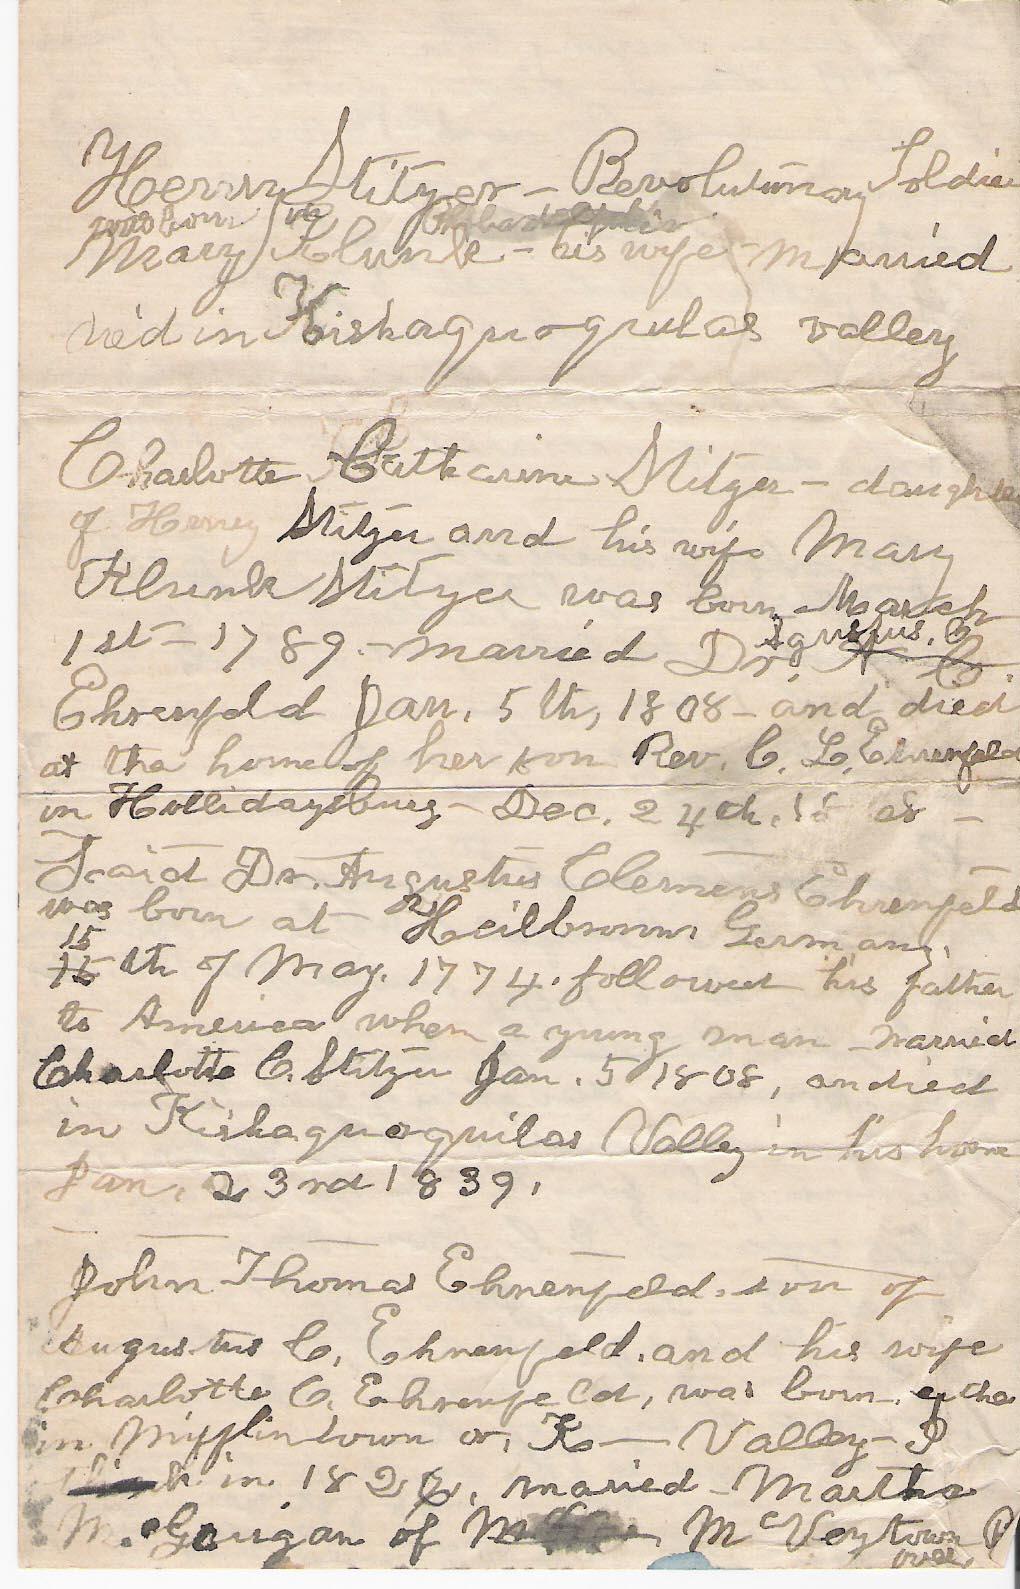 Henry Stitzer - Revolutionary Soldie
was born in Philadelphia
Mary Klunk - his wife - married
died in Kishaquoquilas valley
Charlotte Catharine Stitzer - daughter
of Henry Stitzer and his wife Mary
Klunk Stitzer was born March
1st - 1789 - married Dr. A C.
Agustus. C
Ehrenfeld Jan. 5th, 1808 - and died
at the home of her son Rev. C. L. Ehrenfeld
in Hollidaysburg - Dec. 24th.
Said Dr. Augustus Clemens Ehrenfeld
was born at Heilbronn Germany.
15
15 th of May. 1774. followed his father
to America when a young man married
Charlotte C. Stitzer Jan. 5 1808, and died
in Kishaquoquilas Valley in his home
Jan. 23rd 1839.
John Thomas Ehrenfeld. son of
Augustus C. Ehrenfeld. and his wife
Charlotte C. Ehrenfeld, was born either
in Mifflintown or, K — Valley - I
in 182 , maried - Martha
M. Guigan of Mc Veytown P
over.